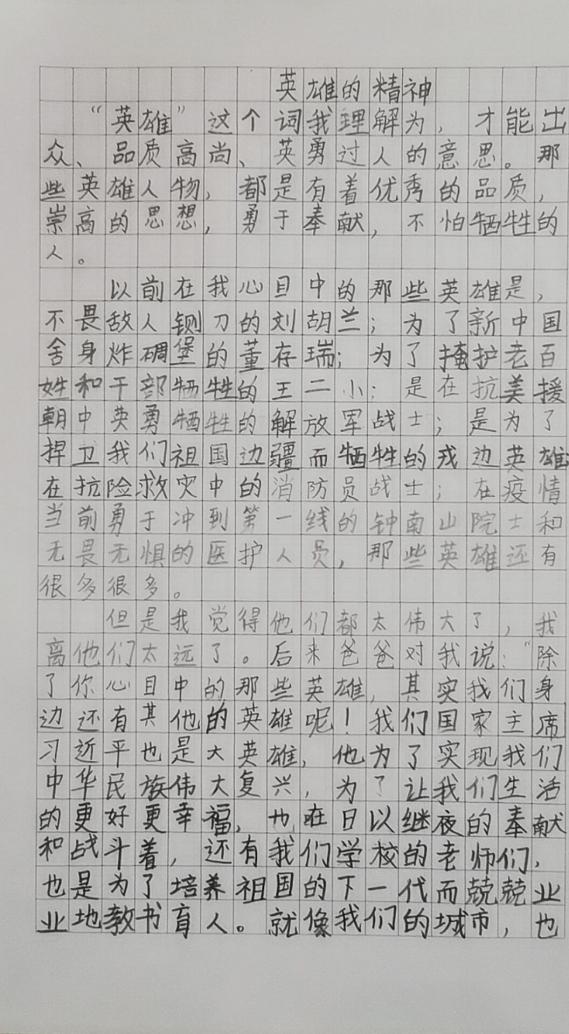 英雄的精神
“英雄”这个词我理解为，才能出
众、品质高尚、英勇过人的意思。那
些英雄人物，都是有着优秀的品质，
崇高的思想，勇于奉献，不怕牺牲的
人。
以前在我心目中的那些英雄是，
不畏敌人铡刀的刘胡兰；为了新中国
舍身炸碉堡的董存瑞；为了掩护老百
姓和干部牺牲的王二小；是在抗美援
朝中英勇牺牲的解放军战士；是为了
捍卫我们祖国边疆而牺牲的戎边英雄
在抗险救灾中的消防员战士；在疫情
当前勇于冲到第一线的钟南山院士和
无畏无惧的医护人员，那些英雄还有
很多很多。
但是我觉得他们都太伟大了，我
离他们太远了。后来爸爸对我说：“除
了你心目中的那些英雄，其实我们身
边还有其他的英雄呢！我们国家主席
习近平也是大英雄，他为了实现我们
中华民族伟大复兴，为了让我们生活
的更好更幸福，也在日以继夜的奉献
和战斗着，还有我们学校的老师们，
也是为了培养祖国的下一代而兢兢业
业地教书育人。就像我们的城市，也